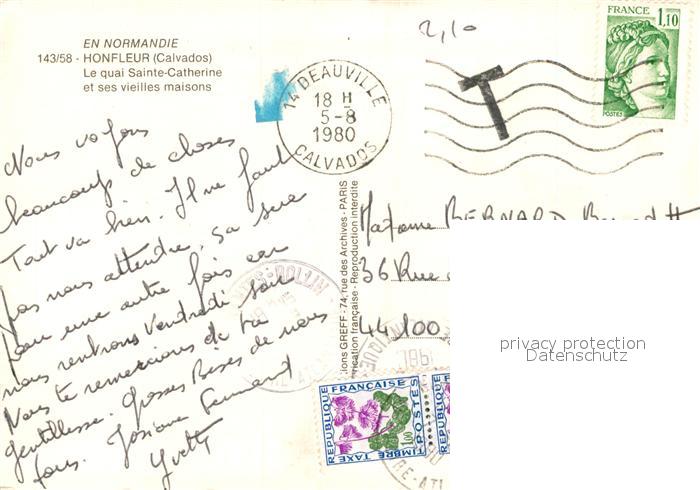 EN NORMANDIE
143/58 - HONFLEUR (Calvados)
Le quai Sainte-Catherine
et ses vieilles maisons
2,10
FRANCE
1,10
POSTES
14 DEAUVILLE
18 H
5-8
1980
CALVADOS
T
Nous voyons
beaucoup de choses
Tout va bien. Il ne faut
pas nous attendre, ça sera
pour une autre fois car
nous rentrons Vendredi soir
Nous te remercions de ta
gentillesse. Grosses Bises de nous
tous. Josiane
Yvette
ions GREFF - 74, rue des Archives - PARIS
rication française - Reproduction interdite
Madame BERNARD
36 Rue
44100
privacy protection
Datenschutz
REPUBLIQUE FRANÇAISE
POSTES
1,00
TIMBRE TAXE
REPUBLIQUE